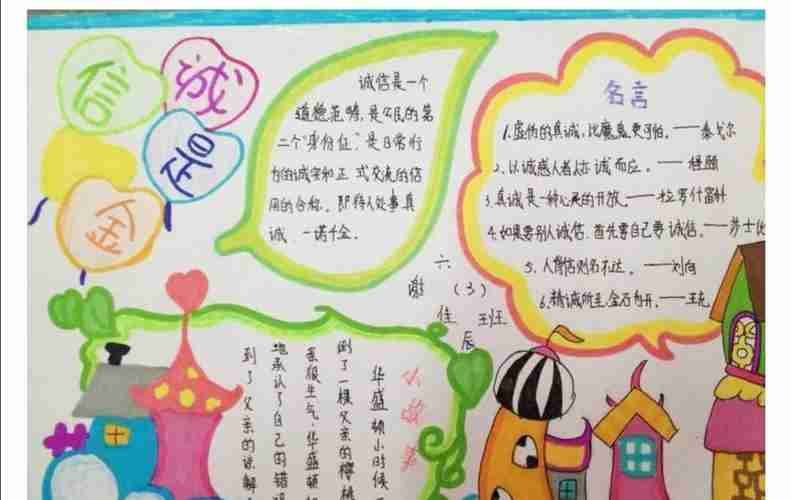 诚信是金
诚信是一个
道德范畴,是公民的第
二个“身份证”,是日常行
为的诚实和正式交流的信
用的合称。即待人处事真
诚、一诺千金。
名言
1.虚伪的真诚,比魔鬼更可怕。——泰戈尔
2.以诚感人者,人亦诚而应。——程颐
3.真诚是一种心灵的开放。——拉罗什富科
4.如果要别人诚信,首先要自己要诚信。——莎士比
5.人背信则名不达。——刘向
6.精诚所至,金石为开。——王充
六(3)班
谢佳辰
小故事
华盛顿小时候
倒了一棵父亲的樱桃
亲很生气,华盛顿
地承认了自己的错
到了父亲的谅解